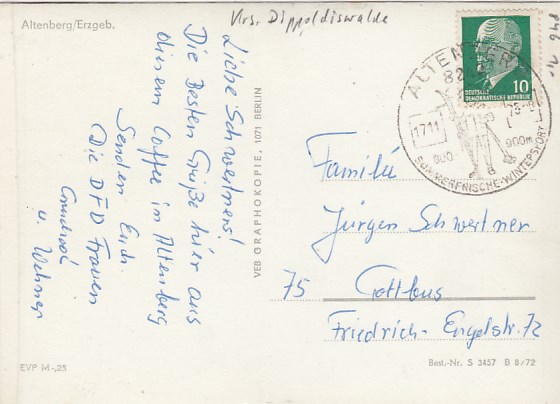 Altenberg/Erzgeb.
Krs. Dippoldiswalde
Liebe Schwertners!
Die Besten Grüße hier aus
diesem Coffee in Altenberg
Senden Euch
Die DFD Frauen
u. Wehner
VEB GRAPHOKOPIE, 1071 BERLIN
DEUTSCHE
DEMOKRATISCHE REPUBLIK
10
ALTENBERG
17.11.
900m
SOMMERFRISCHE-WINTERSPORT
Familie
Jürgen Schwertner
75 Cottbus
Friedrich-Engelstr. 72
EVP M -,25
Best.-Nr. S 3457 B 8/72